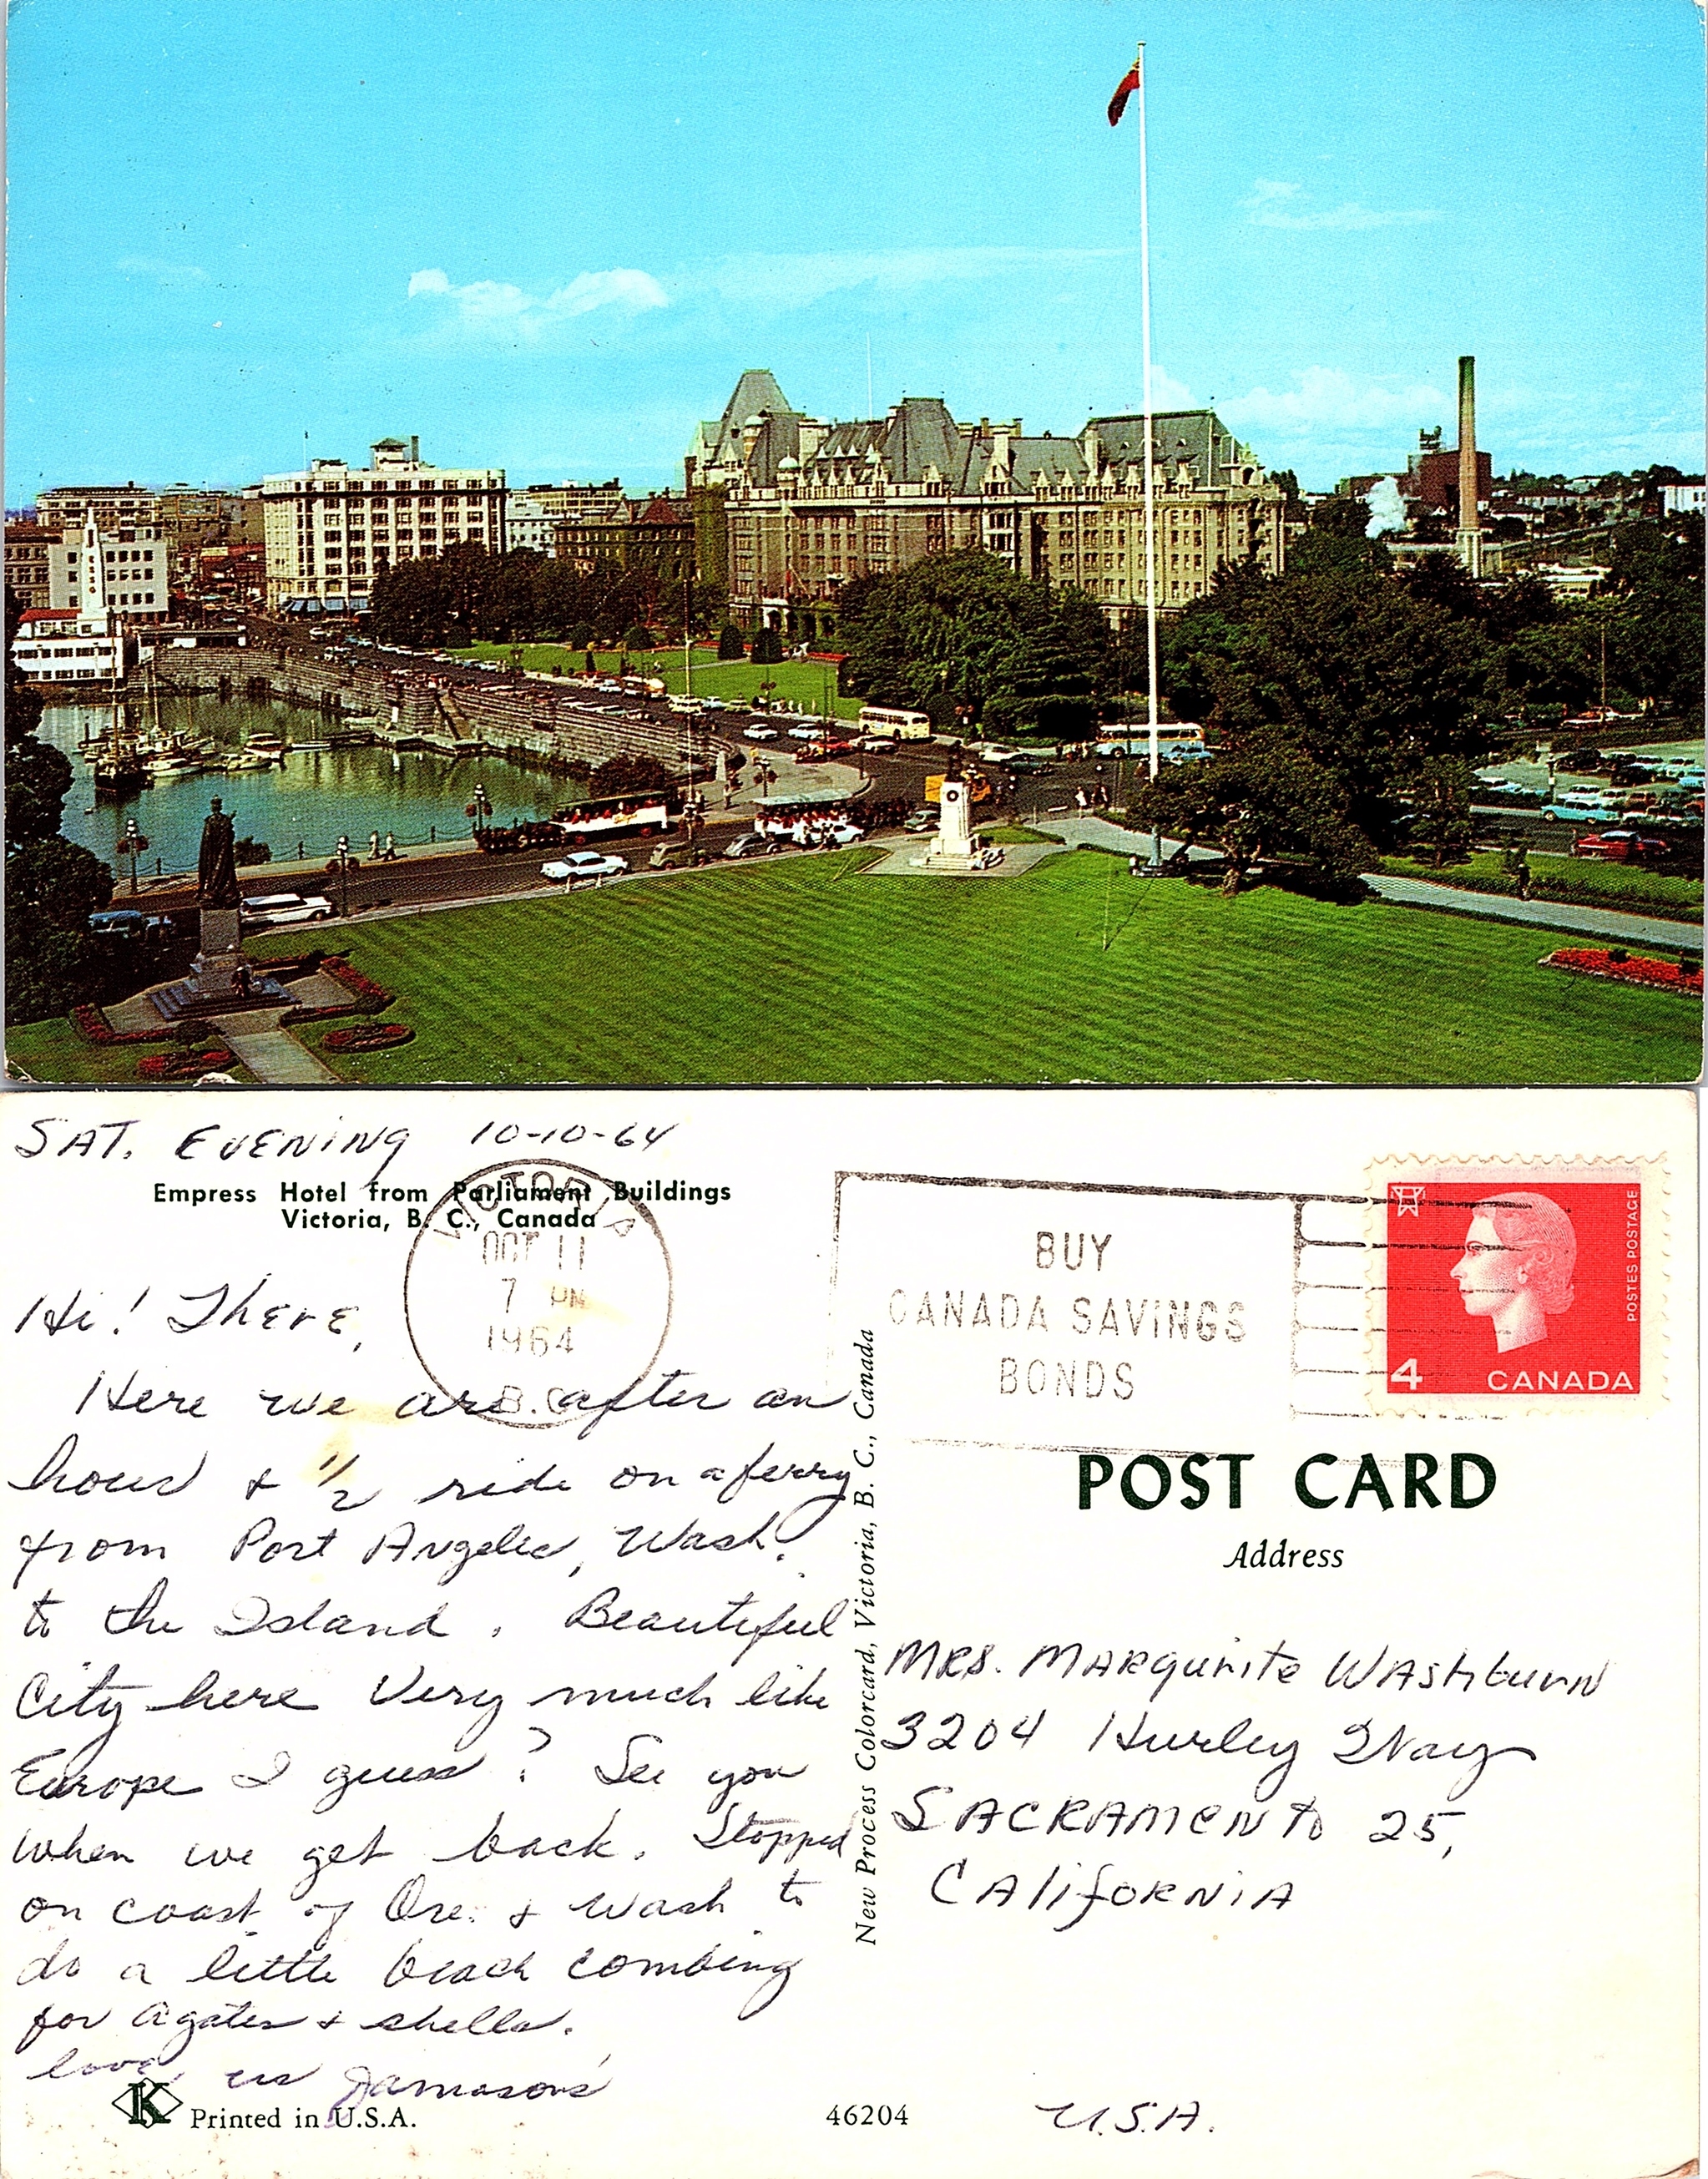 SAT. EVENING 10-10-64
Empress Hotel from Parliament Buildings
Victoria, B. C., Canada
VICTORIA
OCT 11
7 PM
1964
B.C.
BUY
CANADA SAVINGS
BONDS
POSTES POSTAGE
4 CANADA
Hi! There,
Here we are after an
hour & 1/2 ride on a ferry
from Port Angeles, Wash.
to the Island. Beautiful
City here Very much like
Europe I guess? See you
when we get back. Stopped
on coast of Ore. & Wash to
do a little beach combing
for Agates & shells.
love, us Jamasons'
K
Printed in U.S.A.
46204
New Process Colorcard, Victoria, B. C., Canada
POST CARD
Address
MRS. MARqurite WAShburN
3204 Hurley Way
SACRAMENTO 25,
CAliforNiA
U.S.A.